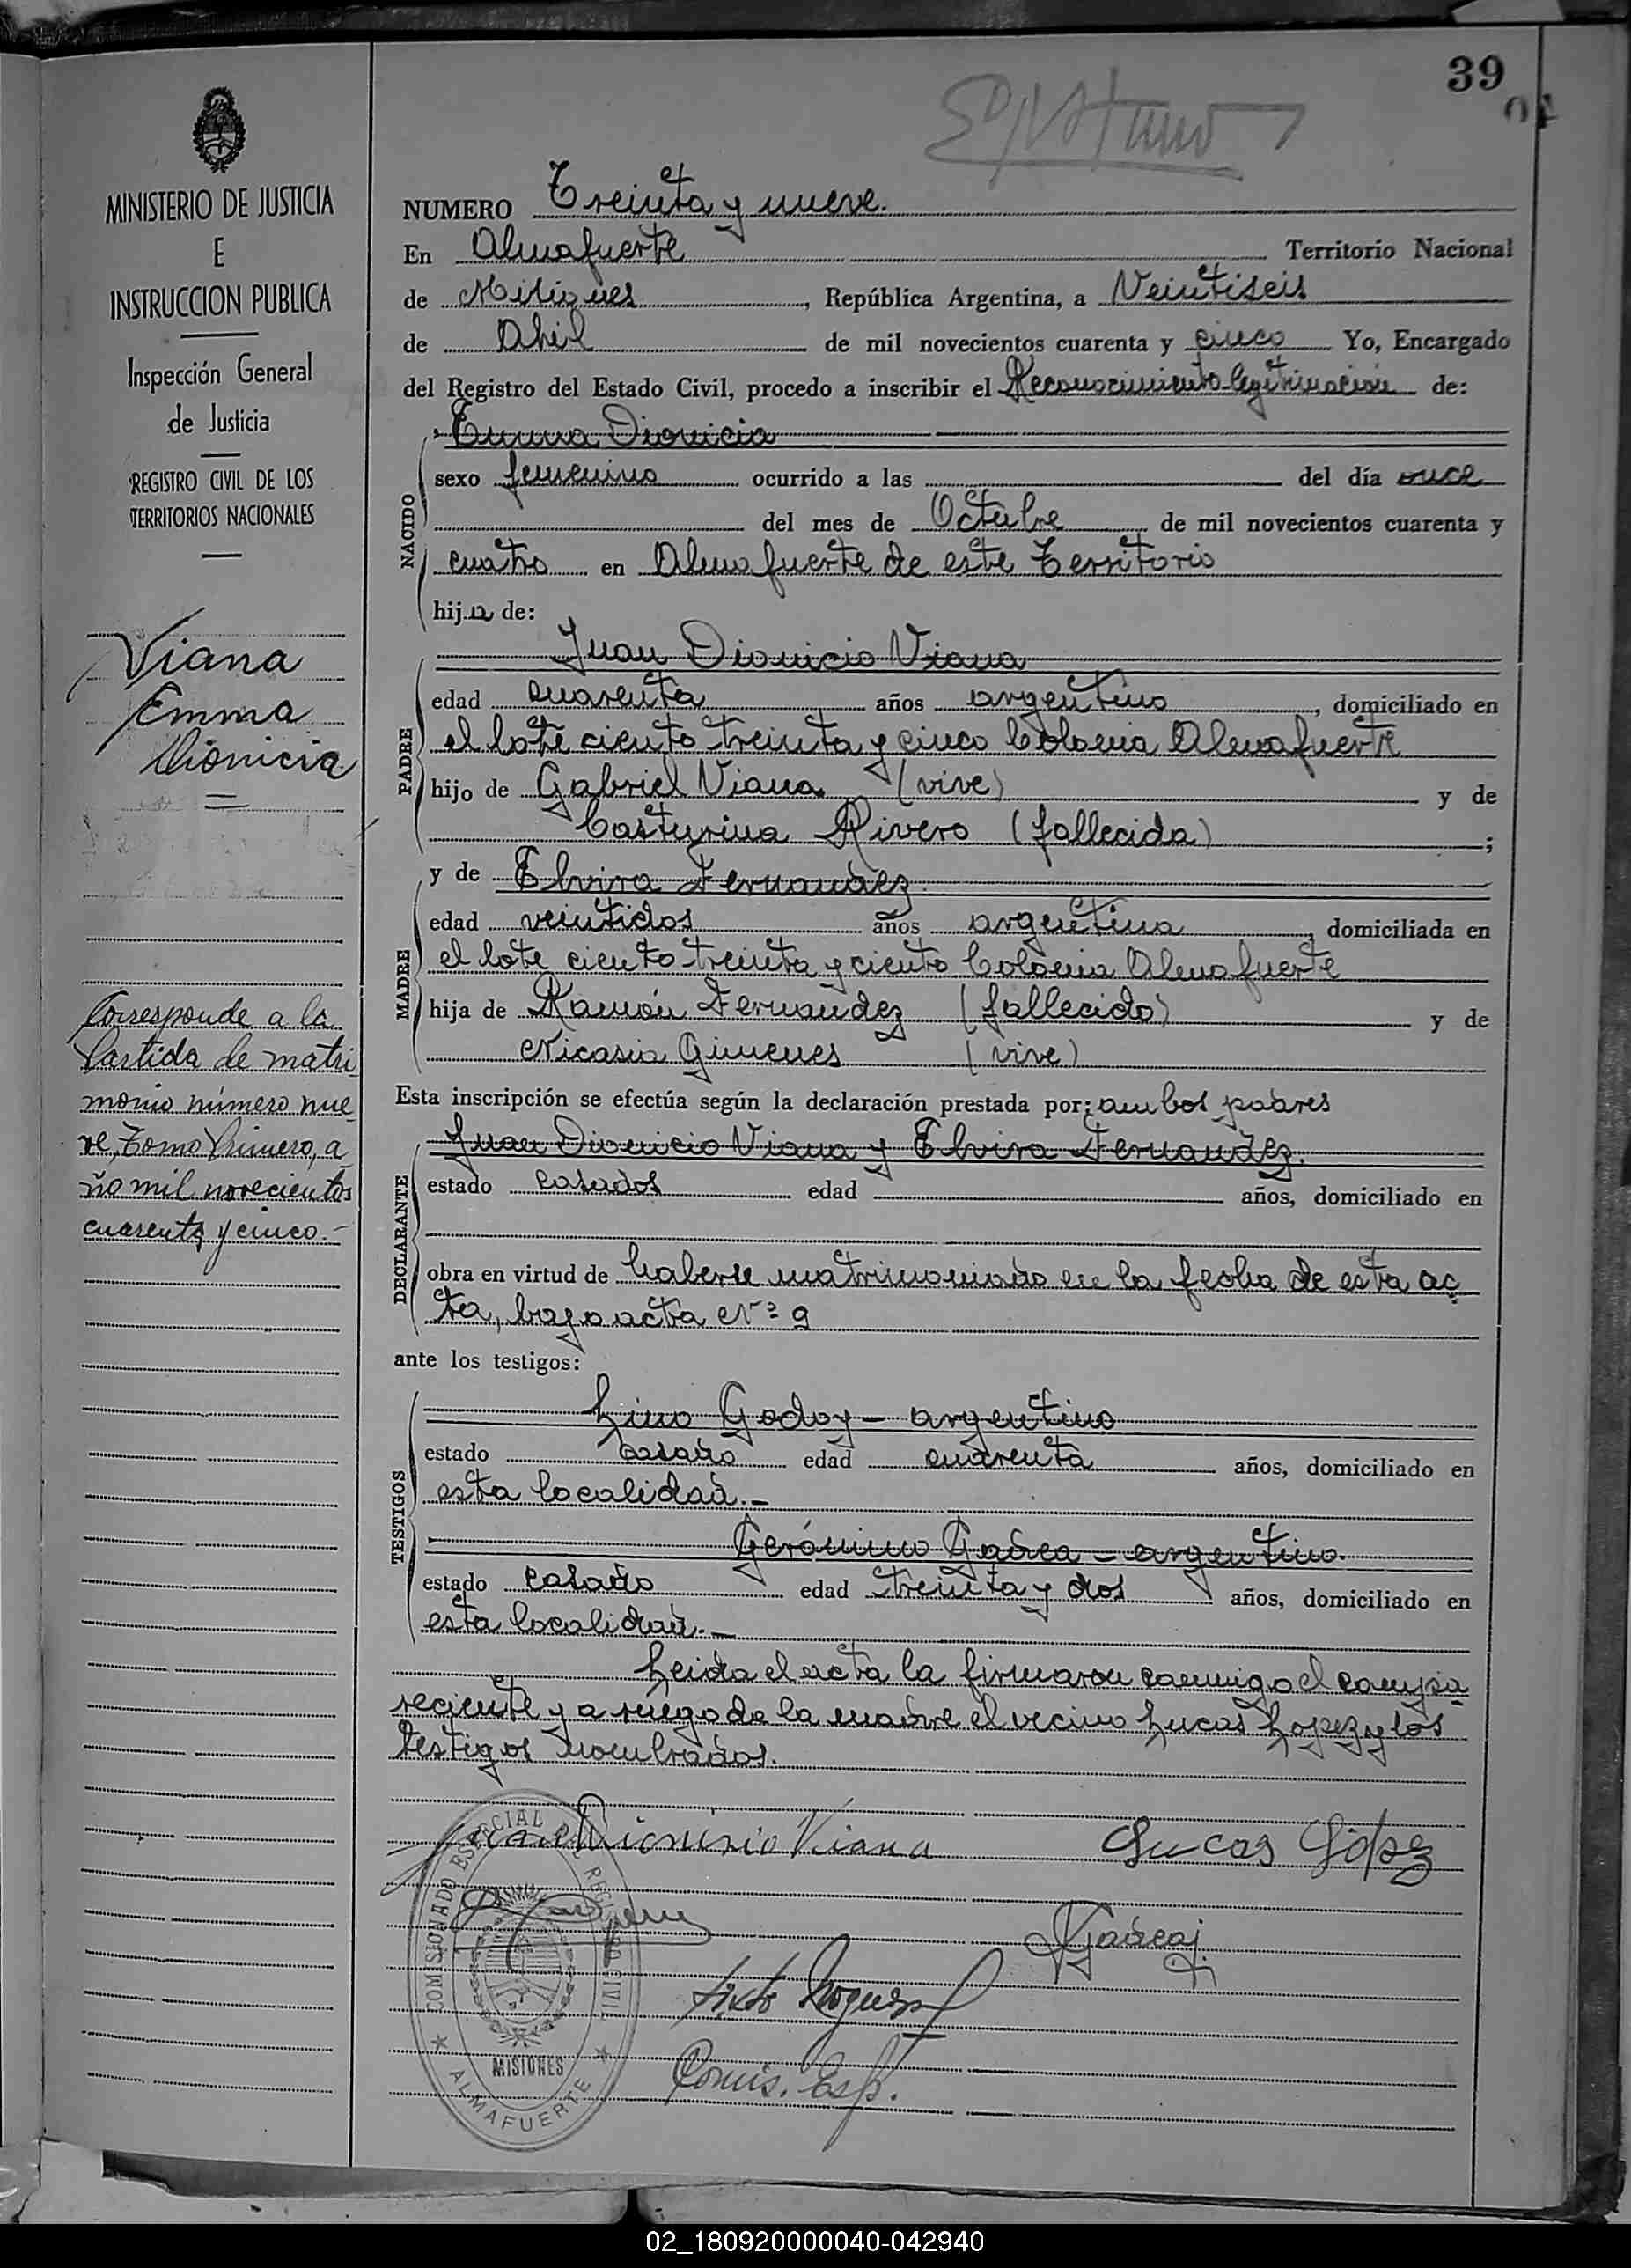 39
MINISTERIO DE JUSTICIA
E
INSTRUCCION PUBLICA
Inspección General
de Justicia
REGISTRO CIVIL DE LOS
TERRITORIOS NACIONALES
Viana
Emma
Dionicia
Corresponde a la
Partida de matri
monio número nue
ve, Tomo Primero, a
ño mil novecientos
cuarenta y cinco.-
NUMERO Treinta y nueve.
En Almafuerte Territorio Nacional
de Misiones, República Argentina, a Veintiseis
de Abril de mil novecientos cuarenta y cinco Yo, Encargado
del Registro del Estado Civil, procedo a inscribir el Reconocimiento-legitimación de:
Emma Dionicia
NACIDO
sexo femenino ocurrido a las del día once
del mes de Octubre de mil novecientos cuarenta y
cuatro en Almafuerte de este Territorio
hija de:
PADRE
Juan Dionicio Viana
edad cuarenta años argentino, domiciliado en
el lote ciento treinta y cinco Colonia Almafuerte
hijo de Gabriel Viana (vive) y de
Casturina Rivero (fallecida) ;
y de Elvira Fernandez
MADRE
edad veintidos años argentina, domiciliada en
el lote ciento treinta y ciento Colonia Almafuerte
hija de Ramón Fernández (fallecido) y de
Nicasia Gimenes (vive)
Esta inscripción se efectúa según la declaración prestada por: ambos padres
DECLARANTE
Juan Dionicio Viana y Elvira Fernandez.
estado casados edad años, domiciliado en
obra en virtud de haberse matrimoniado en la fecha de esta ac
ta, bajo acta Nº 9
ante los testigos:
TESTIGOS
Lino Godoy - argentino
estado casado edad cuarenta años, domiciliado en
esta localidad.-
Gerónimo Gadea - argentino.
estado casado edad treinta y dos años, domiciliado en
esta localidad.-
Leida el acta la firmaron conmigo el compa
reciente y a ruego de la madre el vecino Lucas Lopez y los
testigos nombrados.
Juan Dionisio Viana Lucas López
GGadea
Sixto
Comis. Esp.
COMISIONADO ESPECIAL DEL REGISTRO CIVIL
MISIONES
ALMAFUERTE
02_180920000040-042940